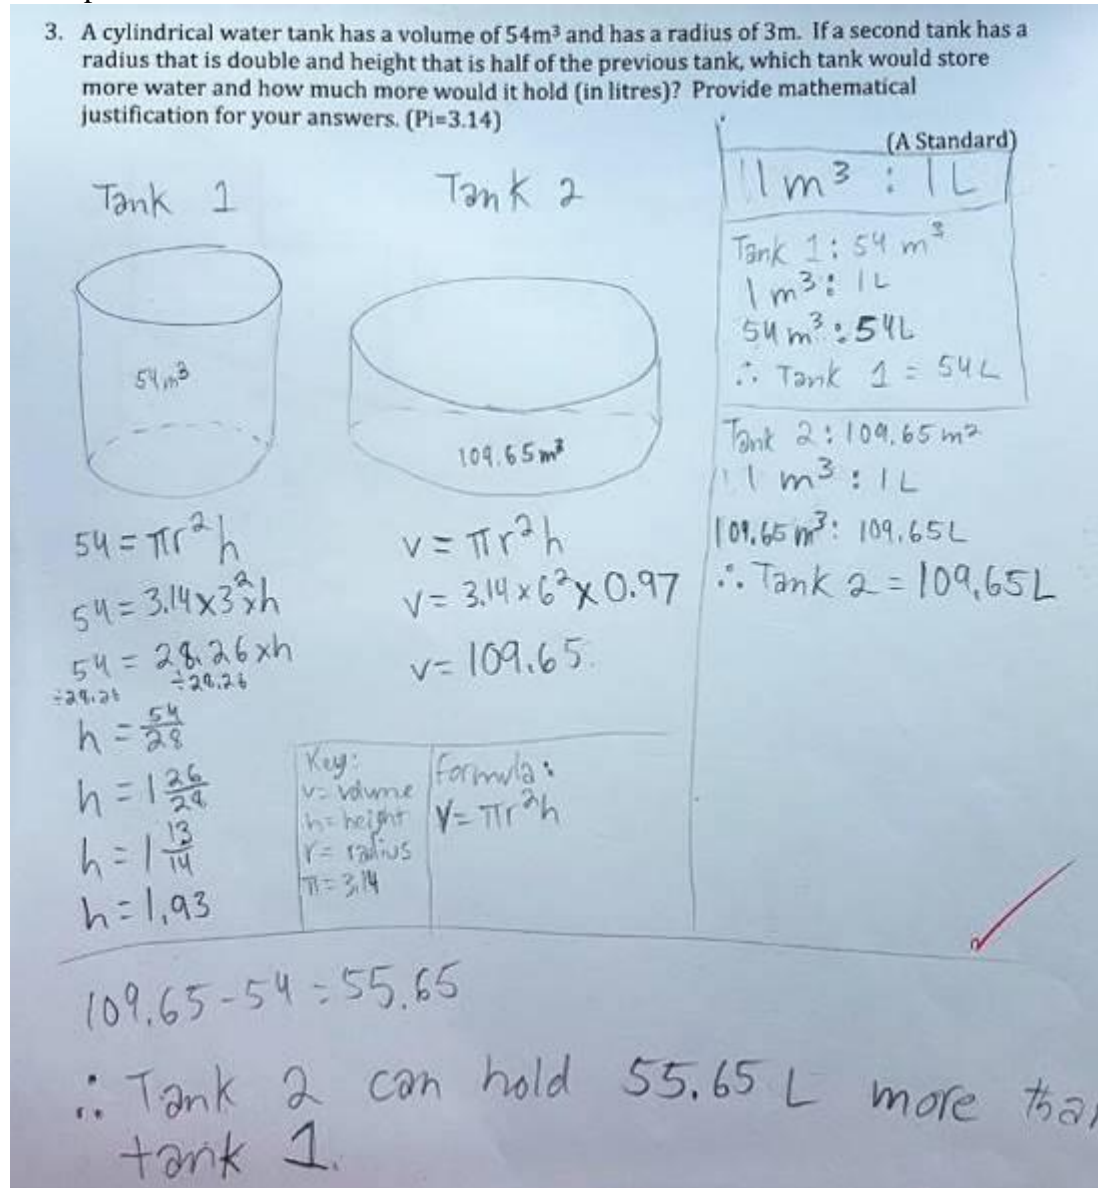 3. A cylindrical water tank has a volume of 54m³ and has a radius of 3m. If a second tank has a
radius that is double and height that is half of the previous tank, which tank would store
more water and how much more would it hold (in litres)? Provide mathematical
justification for your answers. (Pi=3.14)
(A Standard)
Tank 1
54m³
54 = πr²h
54 = 3.14×3²×h
54 = 28.26×h
÷28.26 ÷28.26
h = 54/28
h = 1 26/28
h = 1 13/14
h = 1.93
Tank 2
109.65m³
v = πr²h
v = 3.14×6²×0.97
v = 109.65
Key:
v = volume
h = height
r = radius
π = 3.14
Formula:
V = πr²h
1m³ : 1L
Tank 1: 54 m³
1m³ : 1L
54m³ : 54L
∴ Tank 1 = 54L
Tank 2: 109.65m²
1 m³ : 1L
109.65m³ : 109.65L
∴ Tank 2 = 109.65L
109.65-54 = 55.65
∴ Tank 2 can hold 55.65 L more
tank 1.